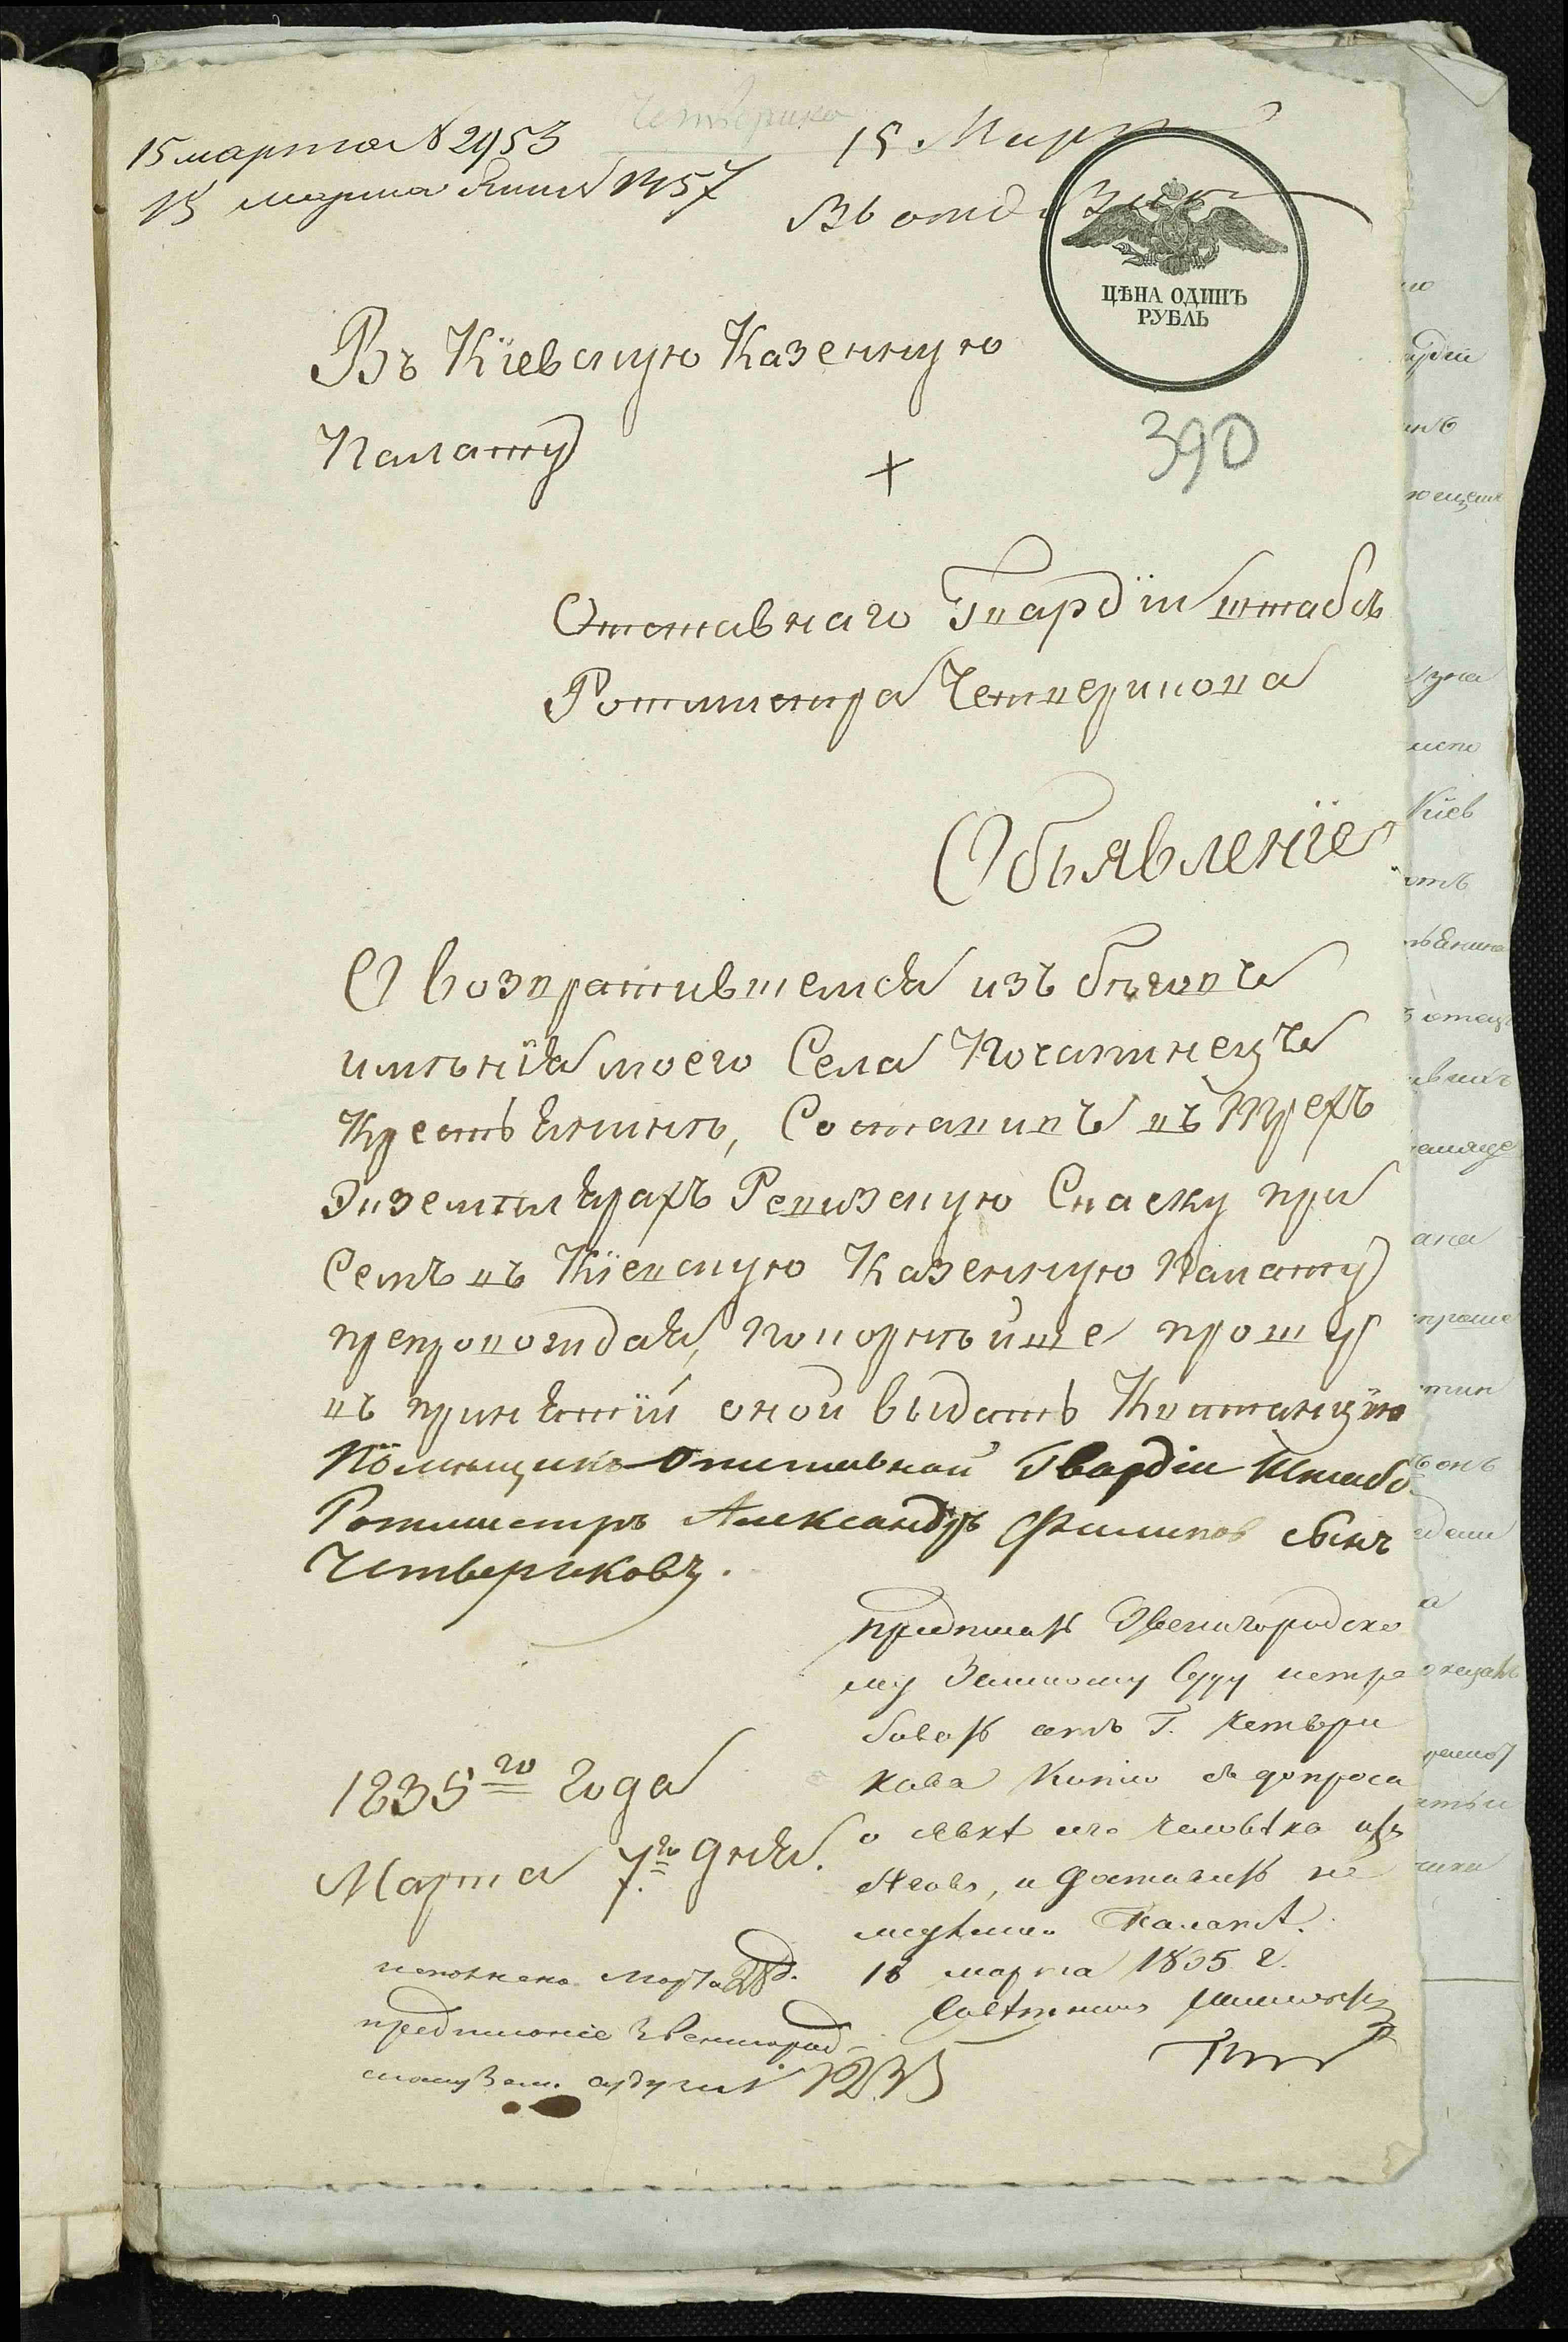 Четверика
15 марта № 2953
15 Март
15 марта № 1357
Въ отд.
ЦѢНА ОДИНЪ
РУБЛЬ
Въ Кіевскую Казенную
Палату
390
Отставнаго Гвардіи штабсъ
Ротмистра Четверикова
Объявленіе
О возвратившемся изъ бѣговъ
имѣнія моего Села Почапинецъ
Крестьянинѣ, Составивъ въ трехъ
Экземплярахъ Ревизскую Скаску при
Семъ въ Кіевскую Казенную Палату
препровождая, Покорнѣйше прошу
въ принятіи оной выдать Квитанцію
Помѣщикъ Отставной Гвардіи Штабсъ
Ротмистръ Александръ Филипов сынъ
Четвериковъ.
предписать Звенигородско
му Земскому Суду истре
бовать отъ Г. Четвери
кова Копію съ допроса
о явкѣ его человѣка изъ
бѣговъ, и доставить не
медленно Палатѣ.
18 марта 1835 г.
Совѣтникъ
1835го года
Марта 7го дня.
исполнено марта 28 д.
предписаніе Звенигород
скому Зем. суду № 1235